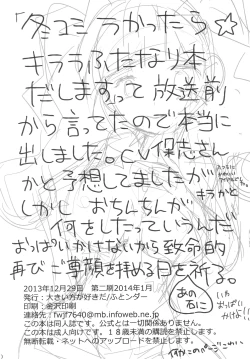 「冬コミうかったら☆
キララふたなり本
だしますって放送前
から言ってたので本当に
出しました。CV保志さん
かと予想してましたが
しかし おちんちんが
をしたっていうんだ
おっぱいかけないから致命的
再びご尊顔を拝める日を祈る。
あの
右に
2013年12月29日 第二刷2014年1月
発行:大きい方が好きだ/ふとンダー
印刷:金沢印刷
連絡先:fwjf7640@mb.infoweb.ne.jp
この本は同人誌です。公式とは一切関係ありません。
この本は成人向けです。18歳未満の購読を禁止します。
無断転載・ネットへのアップロードを禁止します。